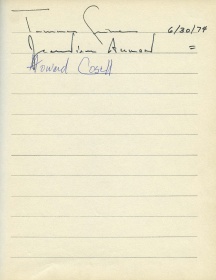 Tommy Grimes 6/30/74
Jean Pierre Aumont =
Howard Cosell